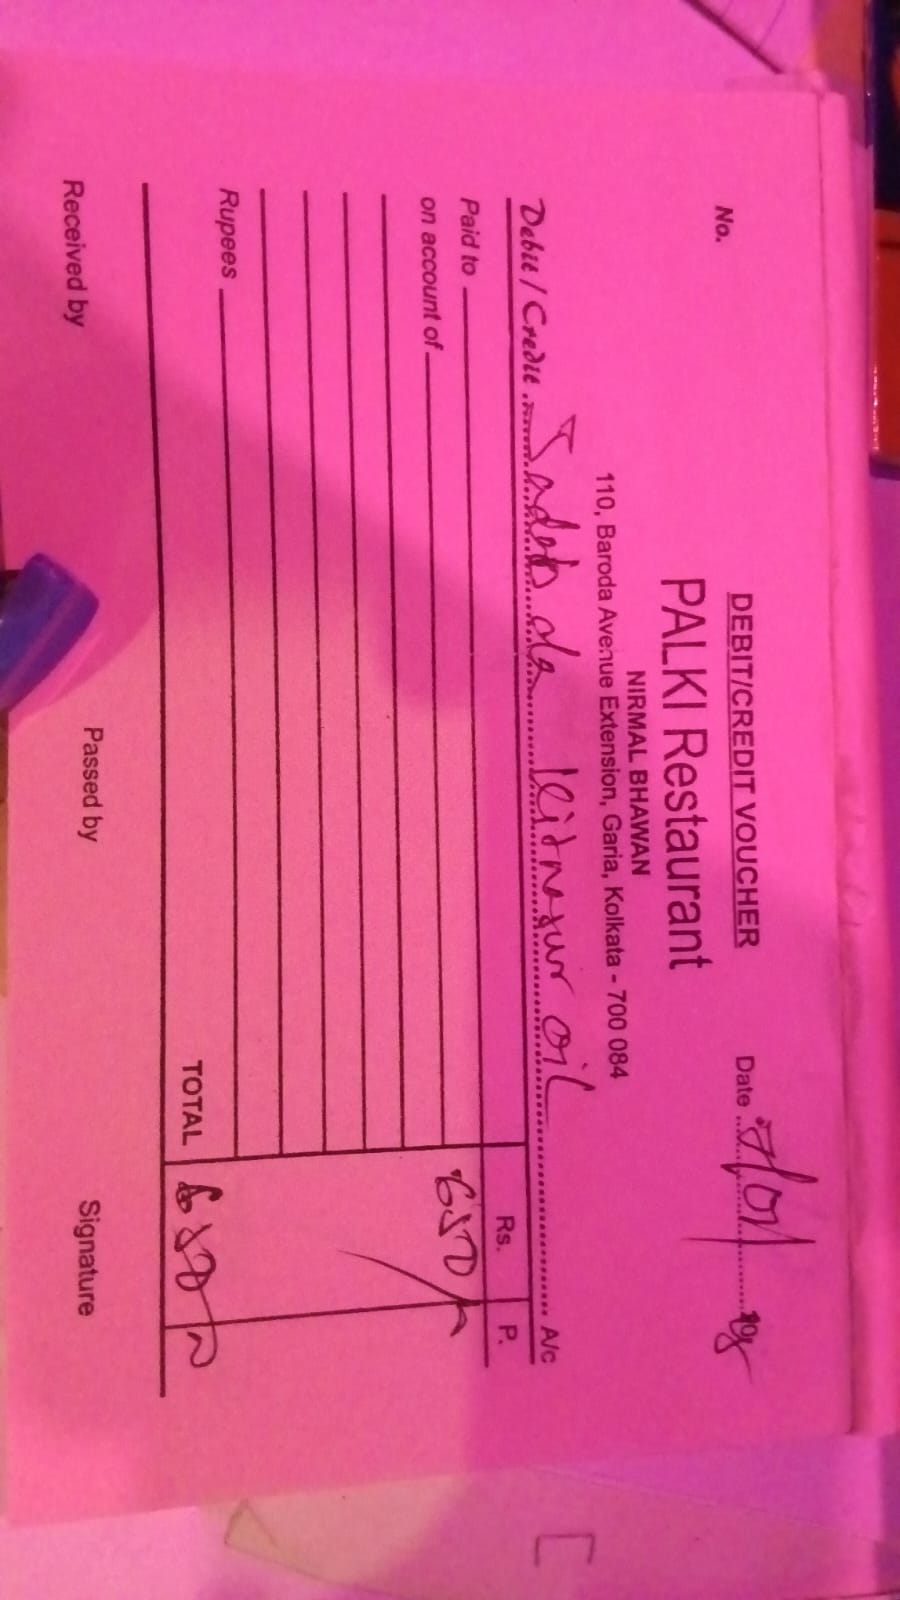 DEBIT/CREDIT VOUCHER
No.
Date
PALKI Restaurant
NIRMAL BHAWAN
110, Baroda Avenue Extension, Garia, Kolkata - 700 084
Debit / Credit oil A/c
Rs. P.
Paid to 650/-
on account of
Rupees
TOTAL 650
Received by Passed by Signature